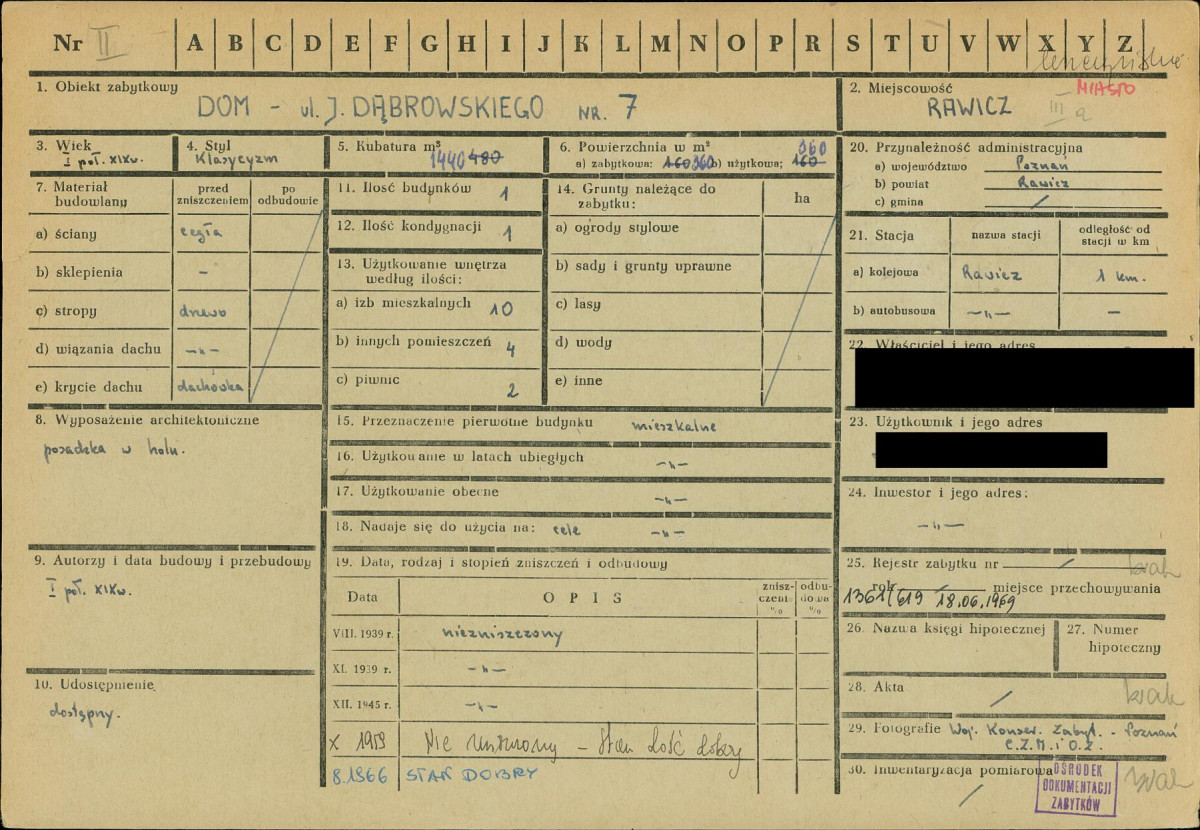 Nr II A B C D E F G H I J K L M N O P R S T U V W X Y Z
1. Obiekt zabytkowy
DOM - ul. J. DĄBROWSKIEGO NR. 7
2. Miejscowość MIASTO
RAWICZ III a
3. Wiek
I poł. XIXw.
4. Styl
Klasycyzm
5. Kubatura m³
1440 480
6. Powierzchnia w m² 360
a) zabytkowa: 160 360 b) użytkowa; 160
20. Przynależność administracyjna
a) województwo Poznań
b) powiat Rawicz
c) gmina /
7. Materiał budowlany
przed zniszczeniem
po odbudowie
a) ściany cegła
b) sklepienia -
c) stropy drewo
d) wiązania dachu -"-
e) krycie dachu dachówka
11. Ilość budynków 1
12. Ilość kondygnacji 1
13. Użytkowanie wnętrza
według ilości:
a) izb mieszkalnych 10
b) innych pomieszczeń 4
c) piwnic 2
14. Grunty należące do
zabytku: ha
a) ogrody stylowe
b) sady i grunty uprawne
c) lasy
d) wody
e) inne
21. Stacja
nazwa stacji
odległość od
stacji w km
a) kolejowa Rawicz 1 km.
b) autobusowa -"- -
22. Właściciel i jego adres
23. Użytkownik i jego adres
8. Wyposażenie architektoniczne
posadzka w holu.
15. Przeznaczenie pierwotne budynku mieszkalne
16. Użytkowanie w latach ubiegłych -"-
17. Użytkowanie obecne -"-
18. Nadaje się do użycia na: cele -"-
24. Inwestor i jego adres:
-"-
9. Autorzy i data budowy i przebudowy
I poł. XIXw.
10. Udostępnienie
dostępny.
19. Data, rodzaj i stopień zniszczeń i odbudowy
Data OPIS
zniszczeni %
odbudowa %
VIII. 1939 r. niezniszczony
XI. 1939 r. -"-
XII. 1945 r. -"-
X 1959 Nie - Stan dość dobry
8.1966 STAN DOBRY
25. Rejestr zabytku nr / brak
rok miejsce przechowywania
1361/619 18.06.1969
26. Nazwa księgi hipotecznej
27. Numer
hipoteczny
28. Akta / brak
29. Fotografie Woj. Konserw. Zabyt. - Poznań
C.Z.M. i O.Z.
30. Inwentaryzacja pomiarowa brak
/
OŚRODEK
DOKUMENTACJI
ZABYTKÓW